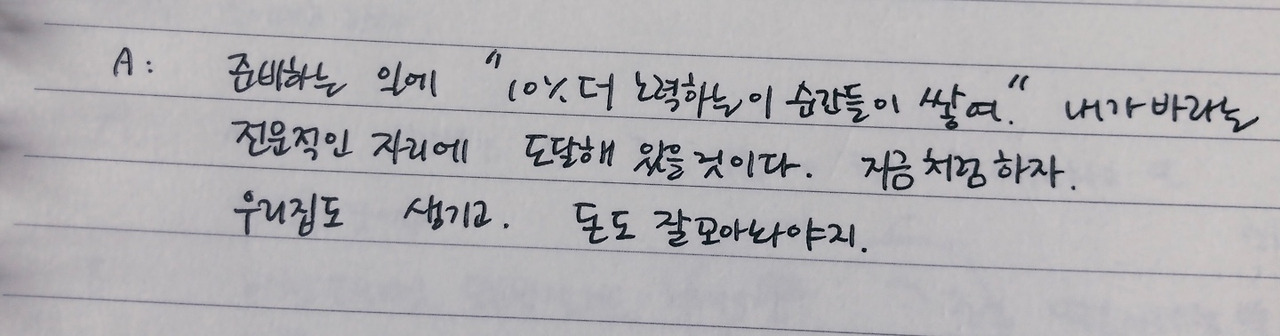 A: 준비하는 일에 "10% 더 노력하는 이 순간들이 쌓여." 내가 바라는
전문적인 자리에 도달해 있을 것이다. 지금처럼 하자.
우리집도 생기고. 돈도 잘 모아놔야지.